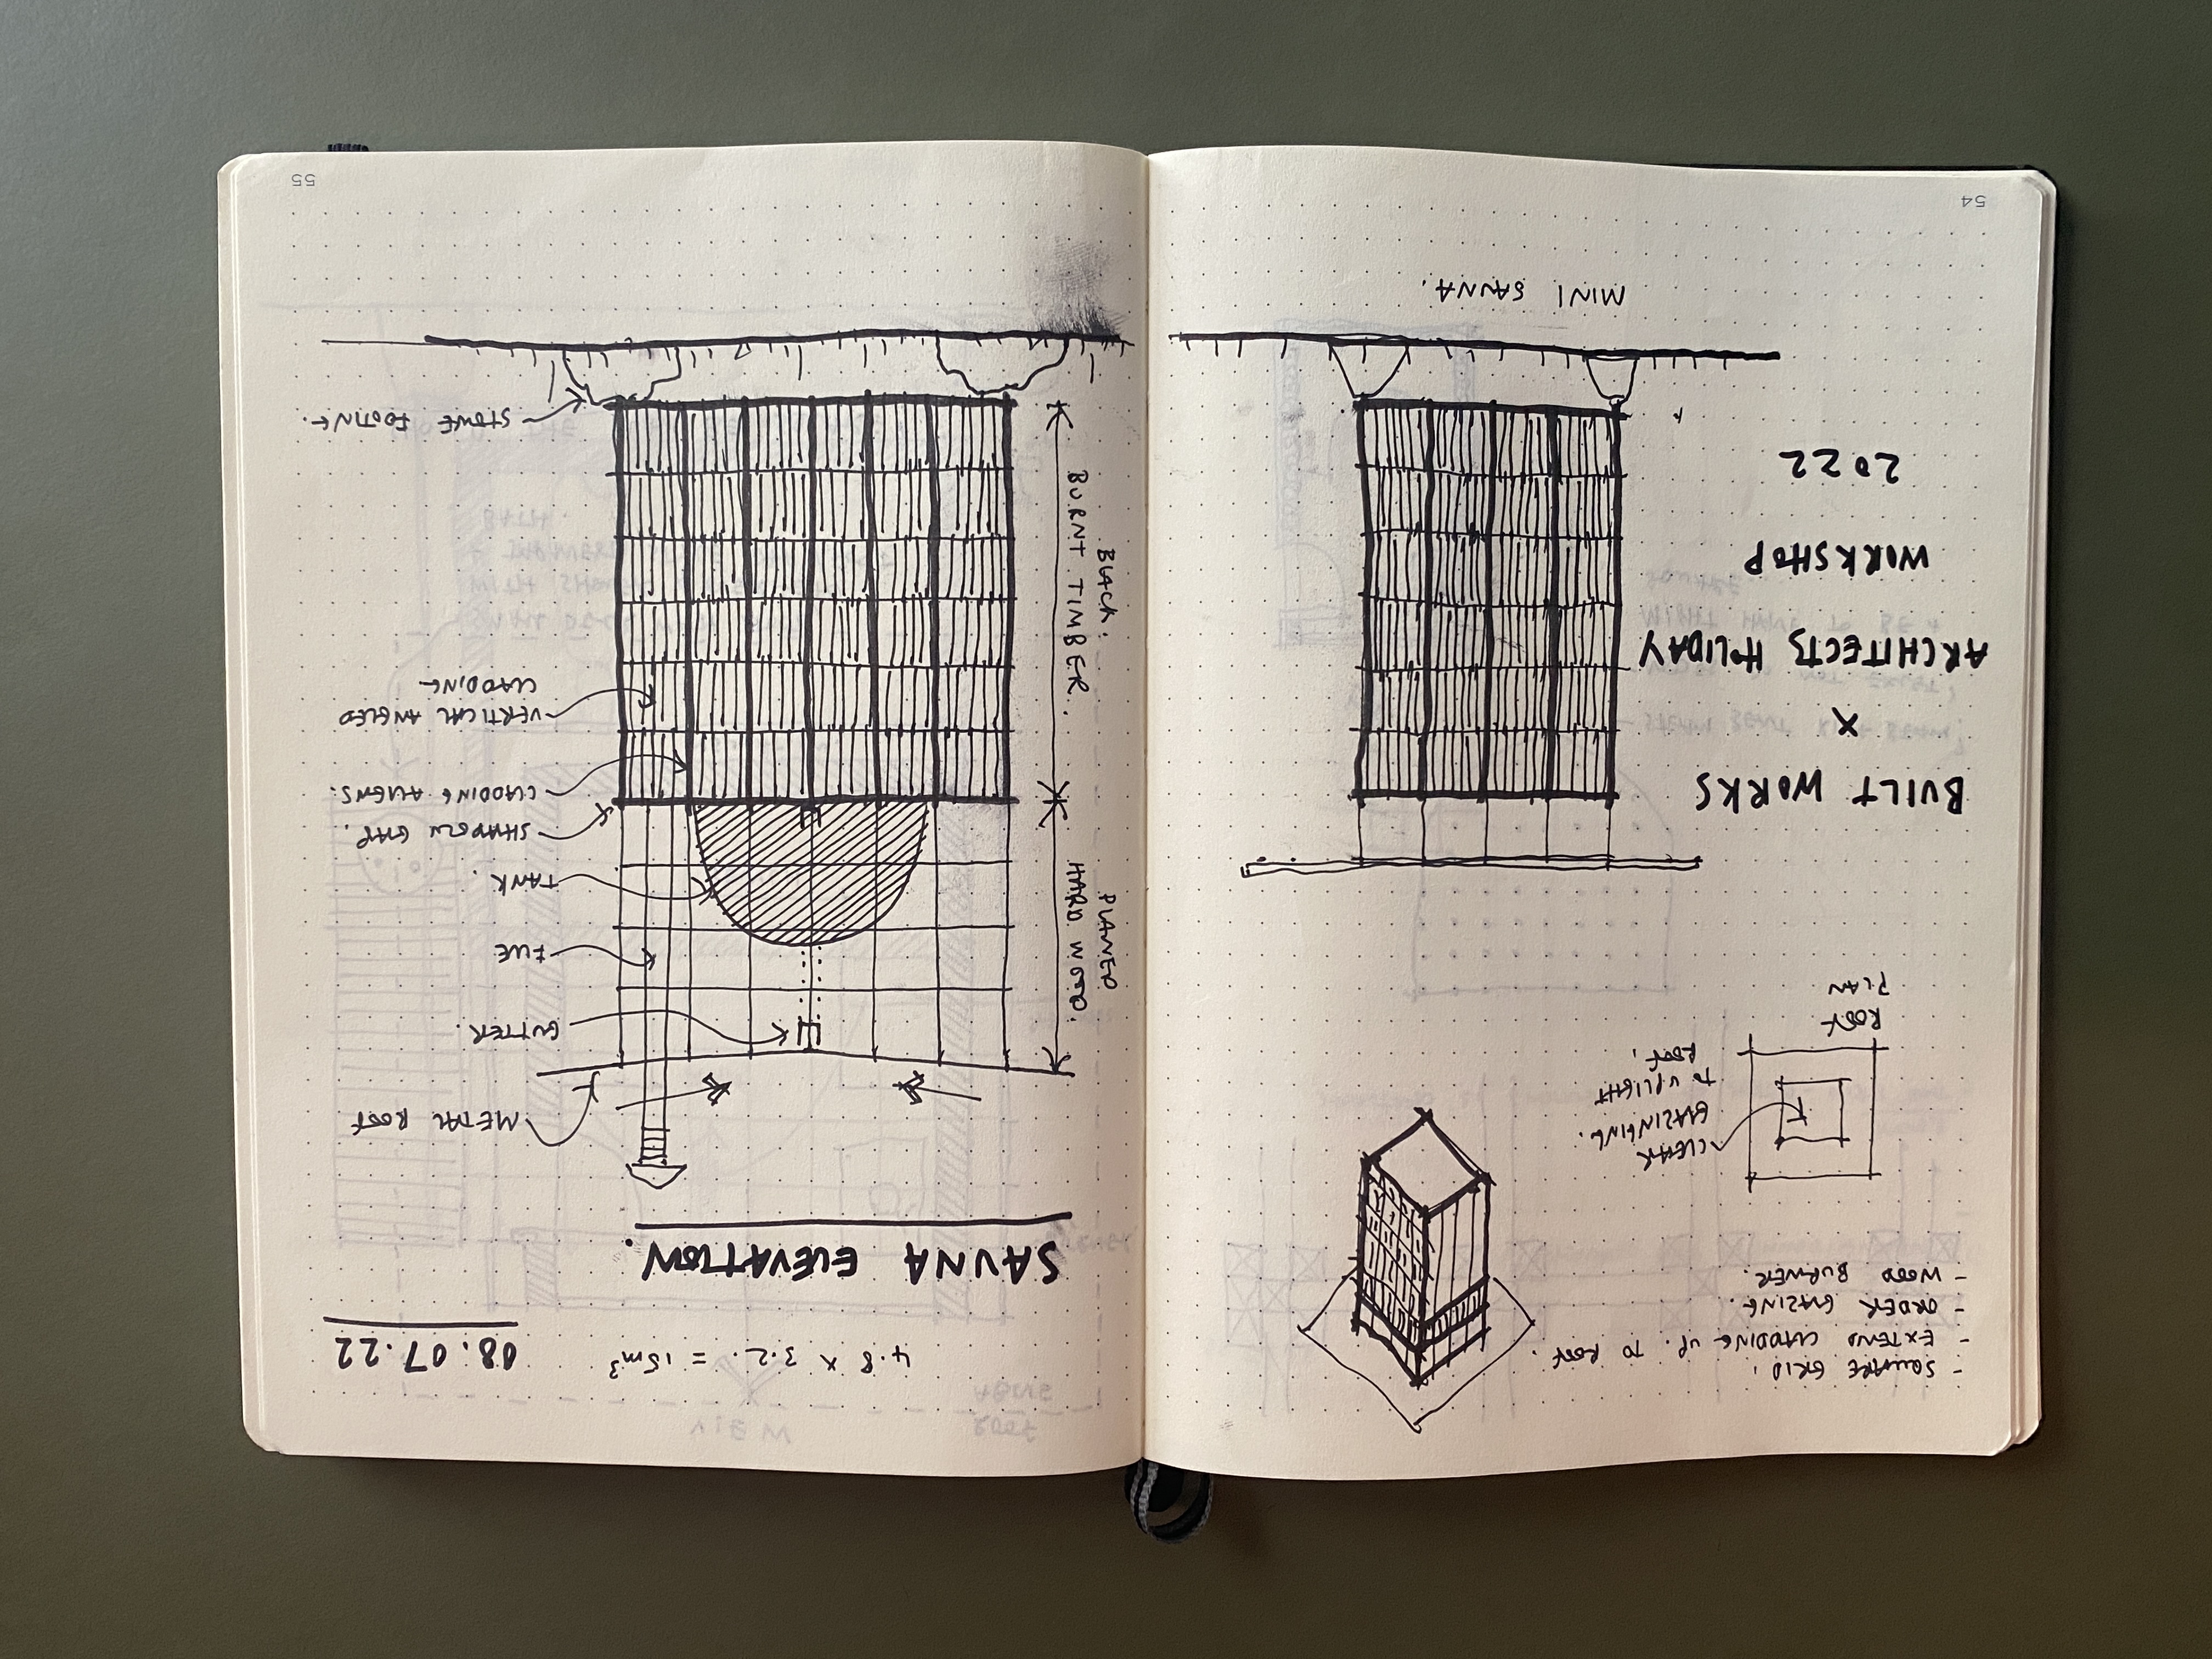 54
- SQUARE GRID.
- EXTEND CLADDING UP TO ROOF.
- ORDER GLAZING.
- WOOD BURNER.
CLEAR
GLAZING.
TO UPLIGHT
ROOF.
ROOF
PLAN
BUILT WORKS
X
ARCHITECTS HOLIDAY
WORKSHOP
2022
MINI SAUNA.
4.8 x 3.2. = 15m³
08.07.22
SAUNA ELEVATION.
METAL ROOF
GUTTER.
FLUE
TANK.
SHADOW GAP.
CLADDING ALIGNS.
VERTICAL ANGLED
CLADDING
STONE FOOTING.
PLANED
HARD WOOD.
BLACK.
BURNT TIMBER.
55